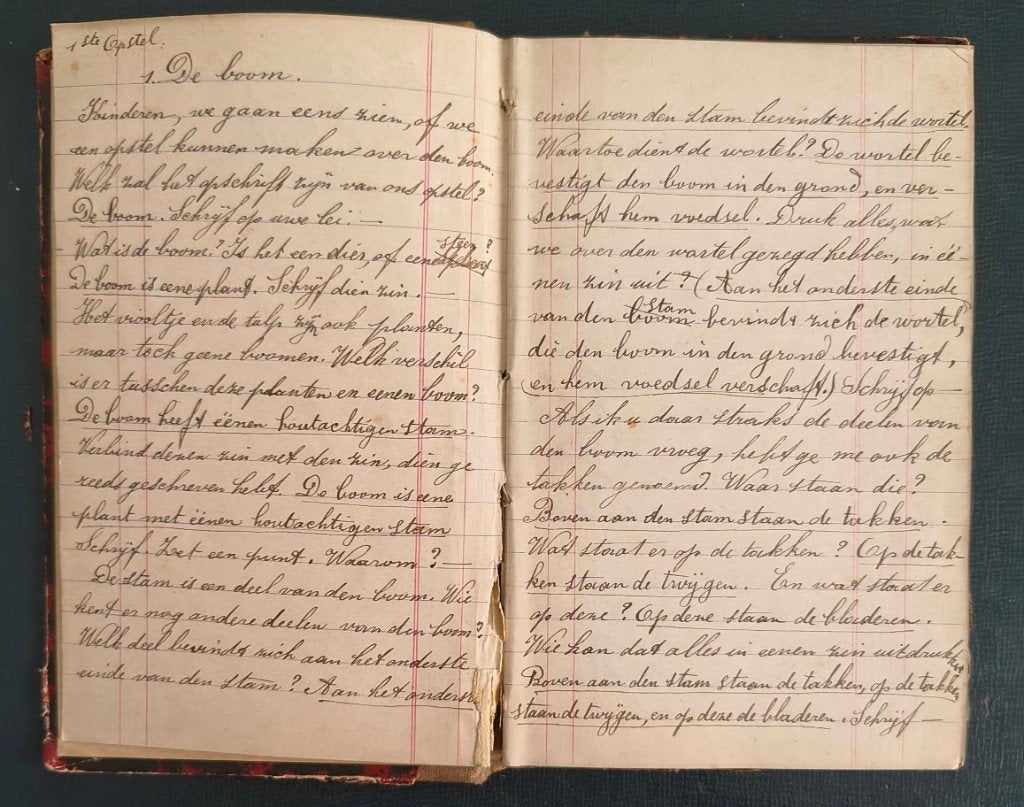 1ste Opstel:
1. De boom.
Kinderen, we gaan eens zien, of we
een opstel kunnen maken over den boom.
Welk zal het opschrift zijn van ons opstel?
De boom. Schrijf op uwe lei. —
Wat is de boom? Is het een dier, of een steen?
De boom is eene plant. Schrijf dien zin. —
Het viooltje en de tulp zijn ook planten,
maar toch geene boomen. Welk verschil
is er tusschen deze planten en eenen boom?
De boom heeft éénen houtachtigen stam.
Verbind dezen zin met den zin, dien ge
reeds geschreven hebt. De boom is eene
plant met éénen houtachtigen stam
Schrijf. Zet een punt. Waarom? —
De stam is een deel van den boom. Wie
kent er nog andere deelen van den boom?
Welk deel bevindt zich aan het onderste
einde van den stam? Aan het onderste
einde van den stam bevindt zich de wortel.
Waartoe dient de wortel? De wortel be-
vestigt den boom in den grond, en ver-
schaft hem voedsel. Druk alles, wat
we over den wortel gezegd hebben, in éé-
nen zin uit? (Aan het onderste einde
van den boom stam bevindt zich de wortel,
die den boom in den grond bevestigt,
en hem voedsel verschaft.) Schrijf op —
Als ik u daar straks de deelen van
den boom vroeg, hebt ge me ook de
takken genoemd. Waar staan die?
Boven aan den stam staan de takken.
Wat staat er op de takken? Op de tak-
ken staan de twijgen. En wat staat er
op deze? Op deze staan de bladeren.
Wie kan dat alles in eenen zin uitdrukken
Boven aan den stam staan de takken, op de takken
staan de twijgen, en op deze de bladeren. Schrijf —